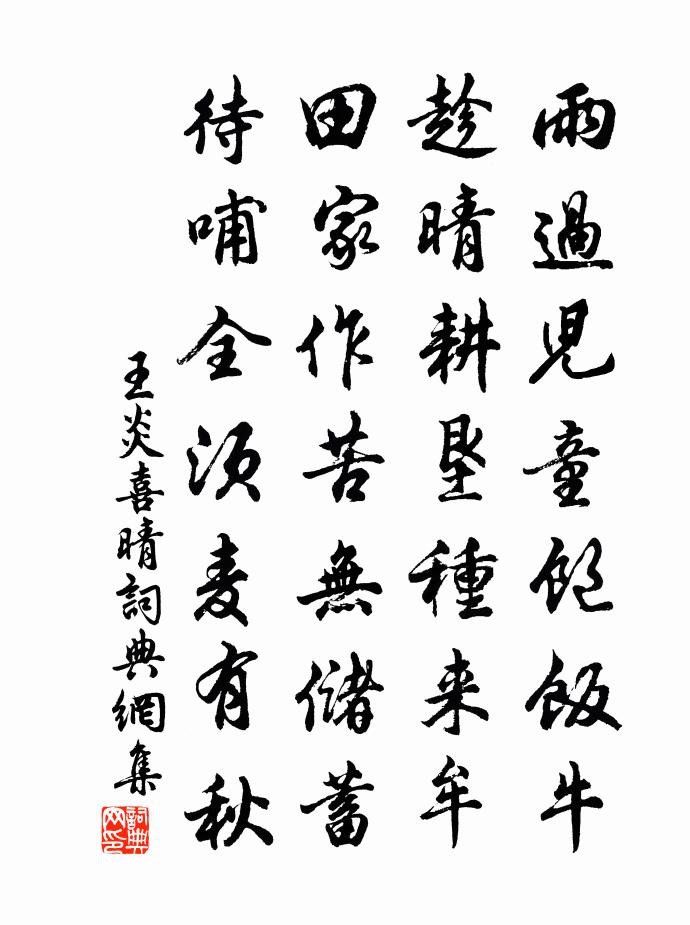 雨過児童飽飯牛
趁晴耕墾種来牟
田家作苦無儲蓄
待哺全須麦有秋
王炎喜晴詞典網集
詞典网印